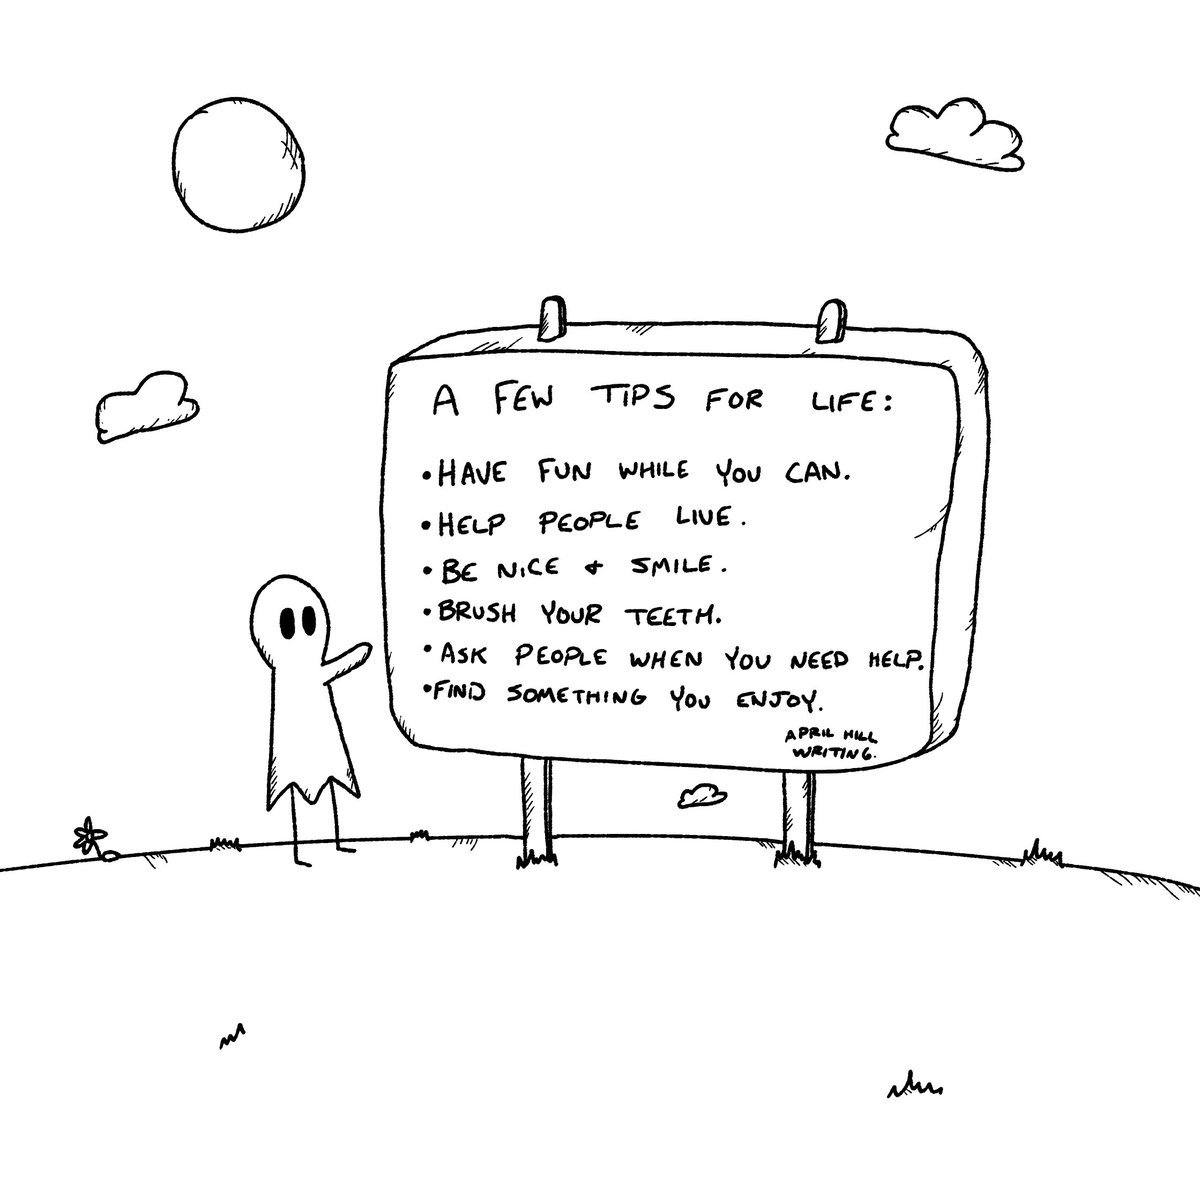 A FEW TIPS FOR LIFE:
•HAVE FUN WHILE YOU CAN.
•HELP PEOPLE LIVE.
•BE NICE & SMILE.
•BRUSH YOUR TEETH.
•ASK PEOPLE WHEN YOU NEED HELP.
•FIND SOMETHING YOU ENJOY.
APRIL HILL
WRITING.